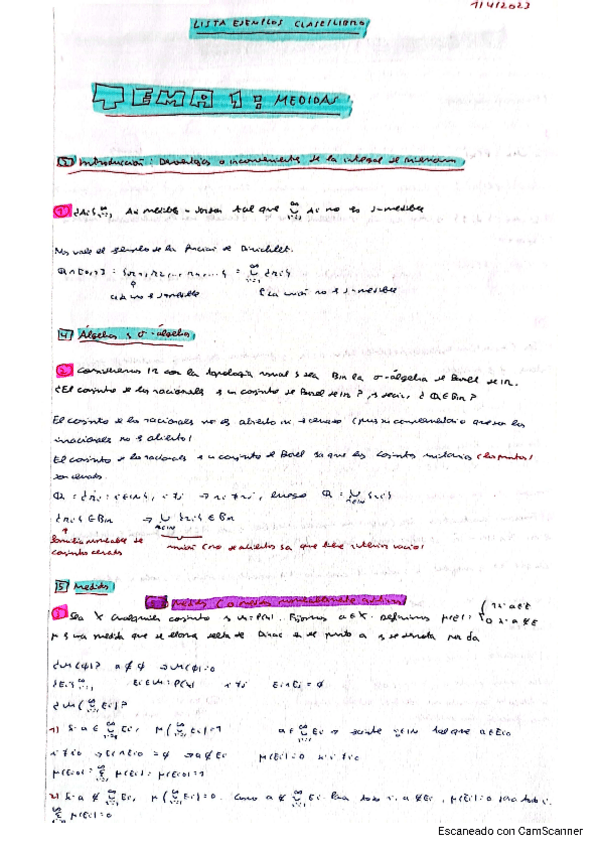 1/4/2023
LISTA EJEMPLOS CLASE/LIBRO
TEMA 1: MEDIDAS
Introducción: Desventajas o inconvenientes de la integral de Riemann
1 {Ai}∞i=1, Ai medibles-Jordan tal que ∪∞i=1 Ai no es J-medible
No vale el ejemplo de la función de Dirichlet.
Q∩[0,1] = {r1, r2, ..., rn, ...} = ∪∞i=1 {ri}
cada uno es J-medible
4 Álgebras y σ-álgebras
2 Consideremos R con la topología usual y sea BR la σ-álgebra de Borel de R.
¿El conjunto de los racionales es un conjunto de Borel de R?, es decir, ¿Q∈BR?
El conjunto de los racionales no es abierto ni cerrado (pues su complementario que son los
irracionales no es abierto)
El conjunto de los racionales es un conjunto de Borel ya que los conjuntos unitarios (los puntos)
son cerrados.
luego Q = ∪ {ri}
{ri} ∈ BR → ∪ {ri} ∈ BR
familia numerable de
conjuntos cerrados
unión (no es abierto ya que tiene interior vacío)
5 Medidas
Medidas (o medidas numerablemente aditivas)
Sea X cualquier conjunto y M=P(X). Fijemos a∈X. Definimos μ(E) = { 1 si a∈E
0 si a∉E
μ es una medida que se llama delta de Dirac en el punto a y se denota por δa
¿μ(∅)? a∉∅ → μ(∅)=0
{Ei}∞i=1 Ei∈M=P(X) i≠j Ei∩Ej=∅
¿μ(∪∞i=1 Ei)?
1) Si a∈∪∞i=1 Ei, μ(∪∞i=1 Ei)=1 a∈∪∞i=1 Ei → existe i0∈N tal que a∈Ei0
i≠i0 → Ei∩Ei0=∅ → a∉Ei μ(Ei)=0 si i≠i0
2) Si a∉∪∞i=1 Ei, μ(∪∞i=1 Ei)=0. Como a∉∪∞i=1 Ei. Para todo i, a∉Ei, μ(Ei)=0 para todo i.
∑∞i=1 μ(Ei)=0
Escaneado con CamScanner